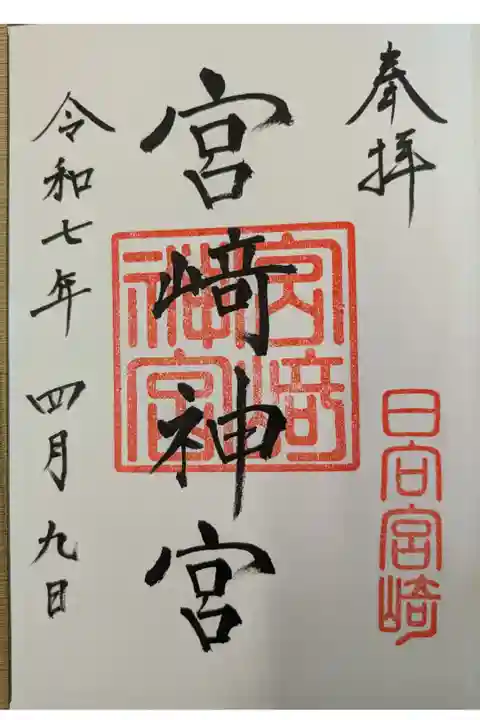 奉拝
日向宮崎
宮崎神宮
宮崎神宮
令和七年 四月九日